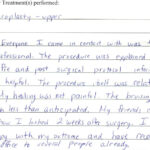 Treatment(s) performed:
roplasty - upper
Everyone I came in contact with was
ofessional. The procedure was explained
Pre and post surgical protocol infor
helpful. The procedure itself was rel
y healing was not painful. The bruising
less than anticipated. My friends
ow I looked 2 weeks after surgery. I
py with my outcome and have
office to several people already.